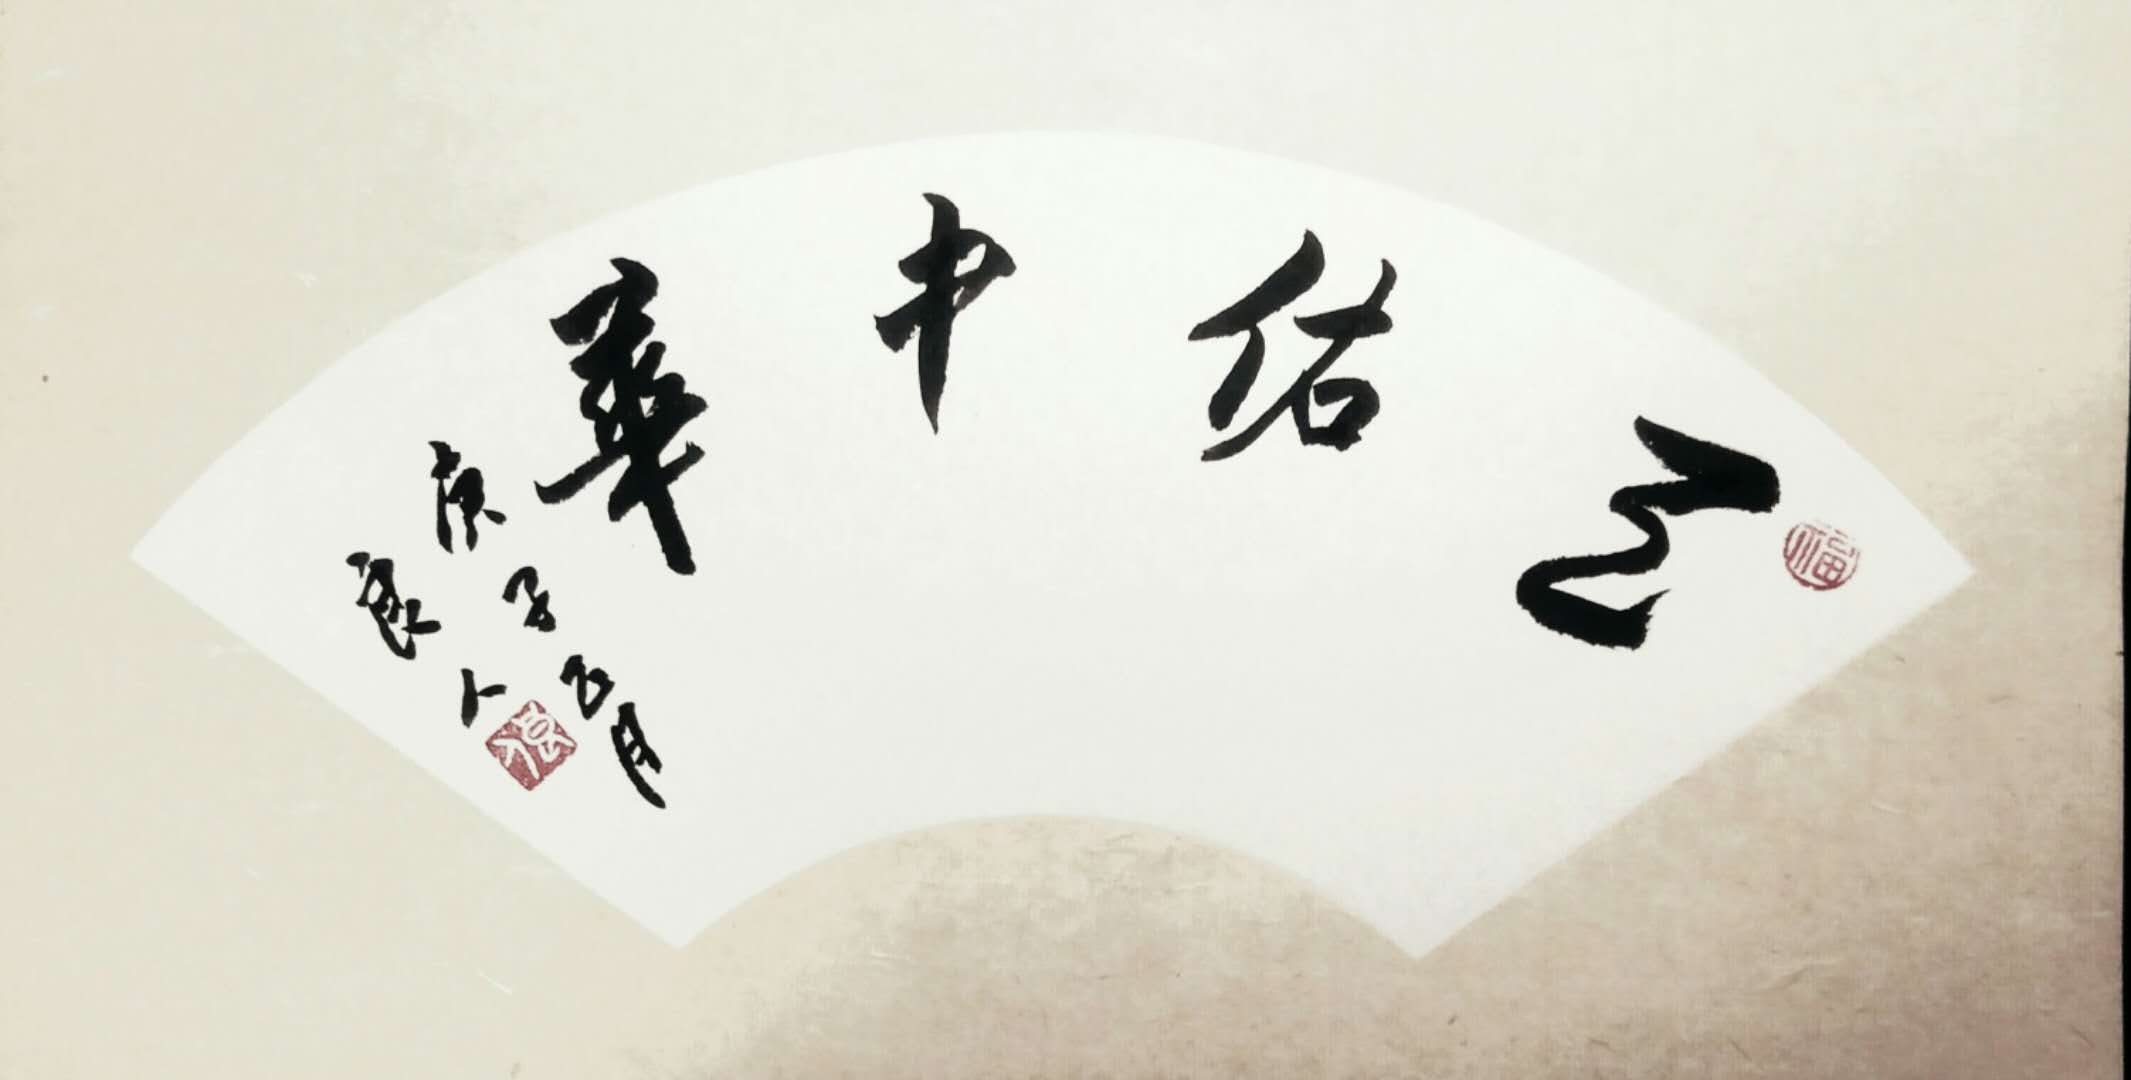 福
天佑中華
庚子五月
良人